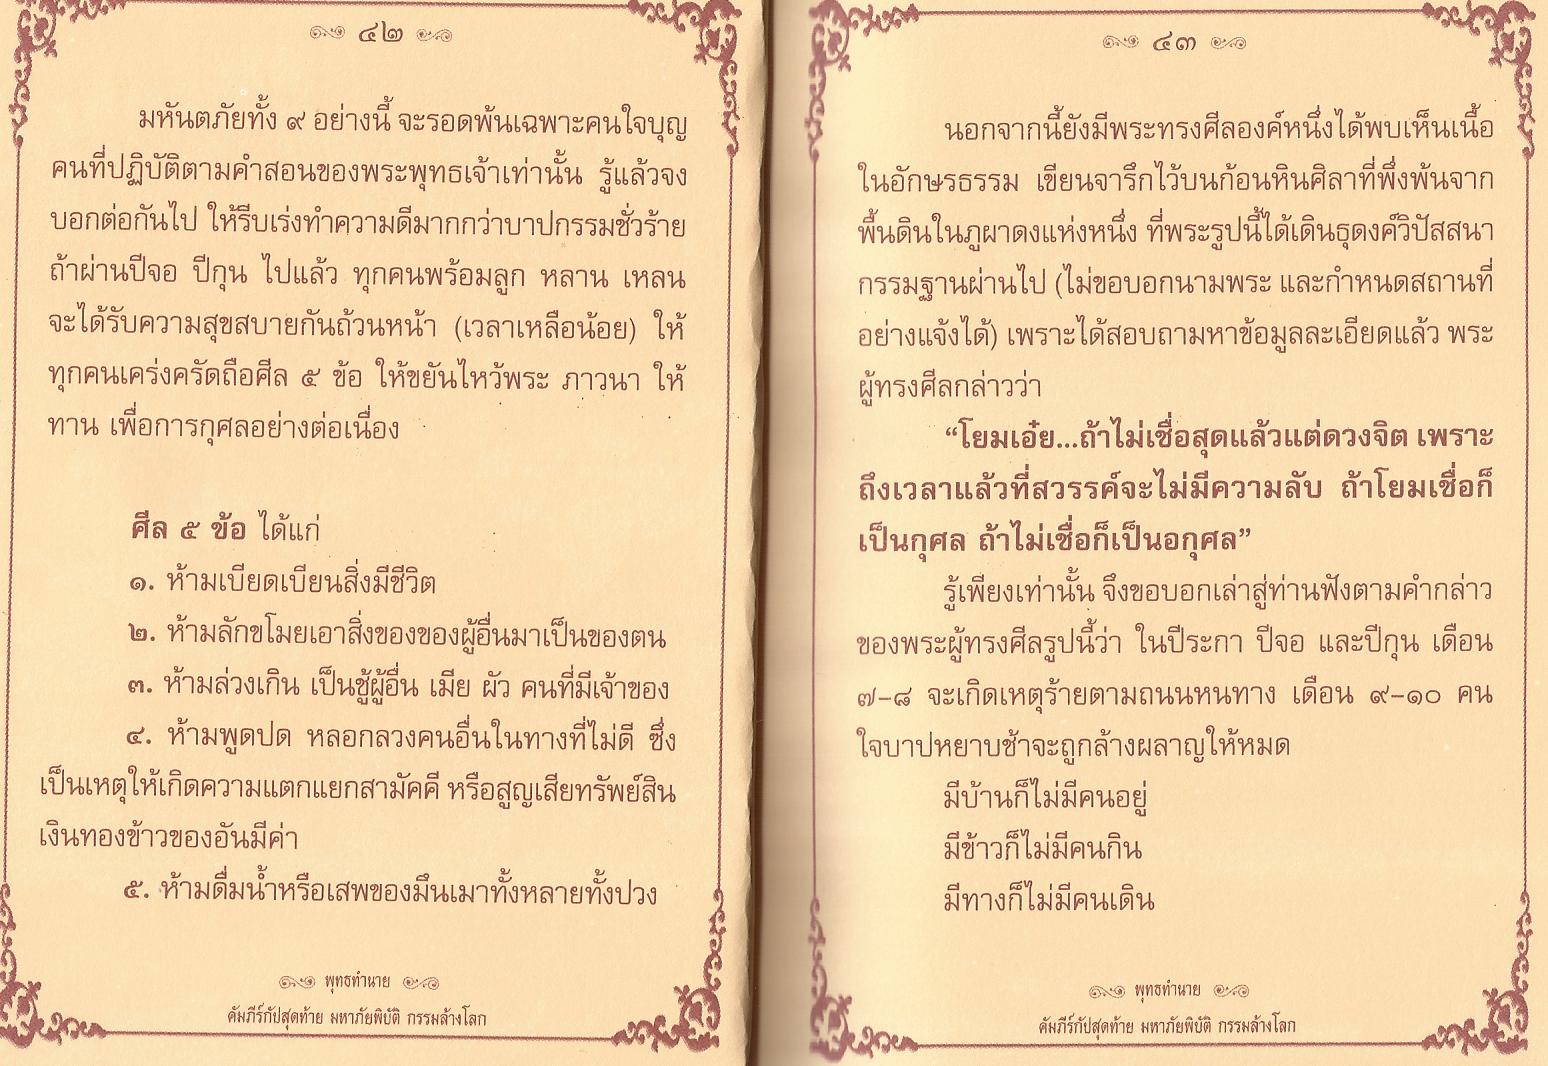 ๔๒
มหันตภัยทั้ง ๙ อย่างนี้ จะรอดพ้นเฉพาะคนใจบุญ
คนที่ปฏิบัติตามคำสอนของพระพุทธเจ้าเท่านั้น รู้แล้วจง
บอกต่อกันไป ให้รีบเร่งทำความดีมากกว่าบาปกรรมชั่วร้าย
ถ้าผ่านปีจอ ปีกุน ไปแล้ว ทุกคนพร้อมลูก หลาน เหลน
จะได้รับความสุขสบายกันถ้วนหน้า (เวลาเหลือน้อย) ให้
ทุกคนเคร่งครัดถือศีล ๕ ข้อ ให้ขยันไหว้พระ ภาวนา ให้
ทาน เพื่อการกุศลอย่างต่อเนื่อง
ศีล ๕ ข้อ ได้แก่
๑. ห้ามเบียดเบียนสิ่งมีชีวิต
๒. ห้ามลักขโมยเอาสิ่งของของผู้อื่นมาเป็นของตน
๓. ห้ามล่วงเกิน เป็นชู้ผู้อื่น เมีย ผัว คนที่มีเจ้าของ
๔. ห้ามพูดปด หลอกลวงคนอื่นในทางที่ไม่ดี ซึ่ง
เป็นเหตุให้เกิดความแตกแยกสามัคคี หรือสูญเสียทรัพย์สิน
เงินทองข้าวของอันมีค่า
๕. ห้ามดื่มน้ำหรือเสพของมึนเมาทั้งหลายทั้งปวง
พุทธทำนาย
คัมภีร์กัปสุดท้าย มหาภัยพิบัติ กรรมล้างโลก
๔๓
นอกจากนี้ยังมีพระทรงศีลองค์หนึ่งได้พบเห็นเนื้อ
ในอักษรธรรม เขียนจารึกไว้บนก้อนหินศิลาที่พึ่งพ้นจาก
พื้นดินในภูผาดงแห่งหนึ่ง ที่พระรูปนี้ได้เดินธุดงค์วิปัสสนา
กรรมฐานผ่านไป (ไม่ขอบอกนามพระ และกำหนดสถานที่
อย่างแจ้งได้) เพราะได้สอบถามหาข้อมูลละเอียดแล้ว พระ
ผู้ทรงศีลกล่าวว่า
“โยมเอ๋ย...ถ้าไม่เชื่อสุดแล้วแต่ดวงจิต เพราะ
ถึงเวลาแล้วที่สวรรค์จะไม่มีความลับ ถ้าโยมเชื่อก็
เป็นกุศล ถ้าไม่เชื่อก็เป็นอกุศล”
รู้เพียงเท่านั้น จึงขอบอกเล่าสู่ท่านฟังตามคำกล่าว
ของพระผู้ทรงศีลรูปนี้ว่า ในปีระกา ปีจอ และปีกุน เดือน
๗-๘ จะเกิดเหตุร้ายตามถนนหนทาง เดือน ๙-๑๐ คน
ใจบาปหยาบช้าจะถูกล้างผลาญให้หมด
มีบ้านก็ไม่มีคนอยู่
มีข้าวก็ไม่มีคนกิน
มีทางก็ไม่มีคนเดิน
พุทธทำนาย
คัมภีร์กัปสุดท้าย มหาภัยพิบัติ กรรมล้างโลก